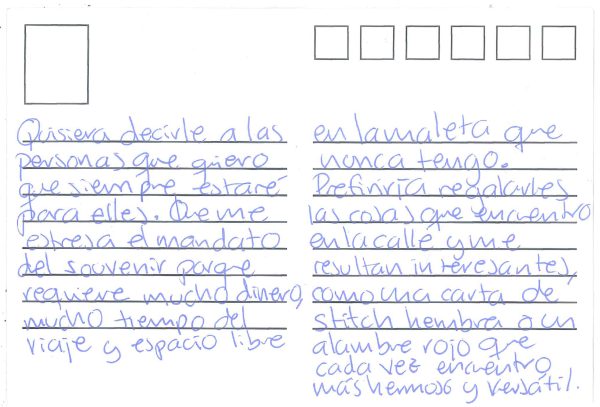 Quisiera decirle a las
personas que quiero
que siempre estaré
para elles. Que me
estresa el mandato
del souvenir porque
requiere mucho dinero,
mucho tiempo del
viaje y espacio libre
en la maleta que
nunca tengo.
Prefiriría regalarles
las cosas que encuentro
en la calle y me
resultan interesantes,
como una carta de
stitch hembra o un
alambre rojo que
cada vez encuentro
más hermoso y versátil.